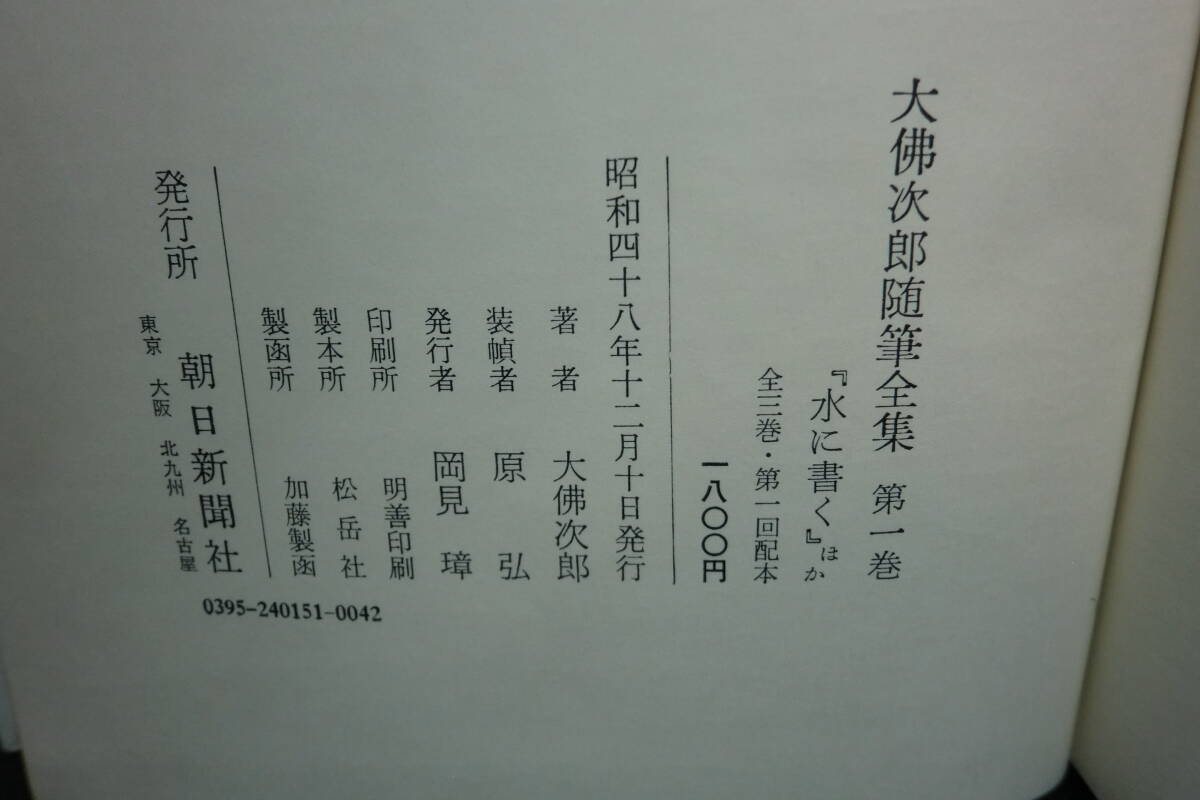 大佛次郎随筆全集 第一巻
『水に書く』ほか
全三巻・第一回配本
一八〇〇円
昭和四十八年十二月十日発行
著者 大佛次郎
装幀者 原弘
発行者 岡見璋
印刷所 明善印刷
製本所 松岳社
製函所 加藤製函
発行所 朝日新聞社
東京 大阪 北九州 名古屋
0395-240151-0042